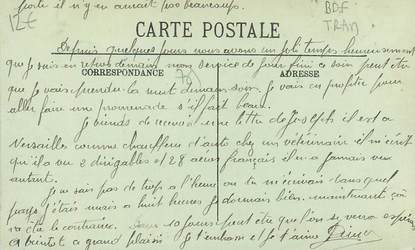 porte il n'y en aurait pas beaucoup.
12€
BDF
TRAM
CARTE POSTALE
Depuis quelques jours nous avons un joli temps heureusement
que je suis en repos demain mon service de jour fini a soir peut etre
CORRESPONDANCE
ADRESSE
que je vais prendre la nuit demain soir. Je vais en profiter pour
aller faire une promenade s'il fait beau.
Je viens de recevoir une lettre de Joseph il est a
Versailles comme chauffeur d'auto chez un vétérinaire il m'écrit
qu'il a vu 2 dirigeables et 28 aeros français il n'a jamais vu
autant.
Je ne sais pas de temps a l'heure ou tu m'écrivais dans quel
pays j'étais mais a huit heures je dormais bien. maintenant ça
va être le contraire. Dans 10 jours peut être que l'on se verra
a bientôt a grand plaisir Je t'embrasse et je t'aime